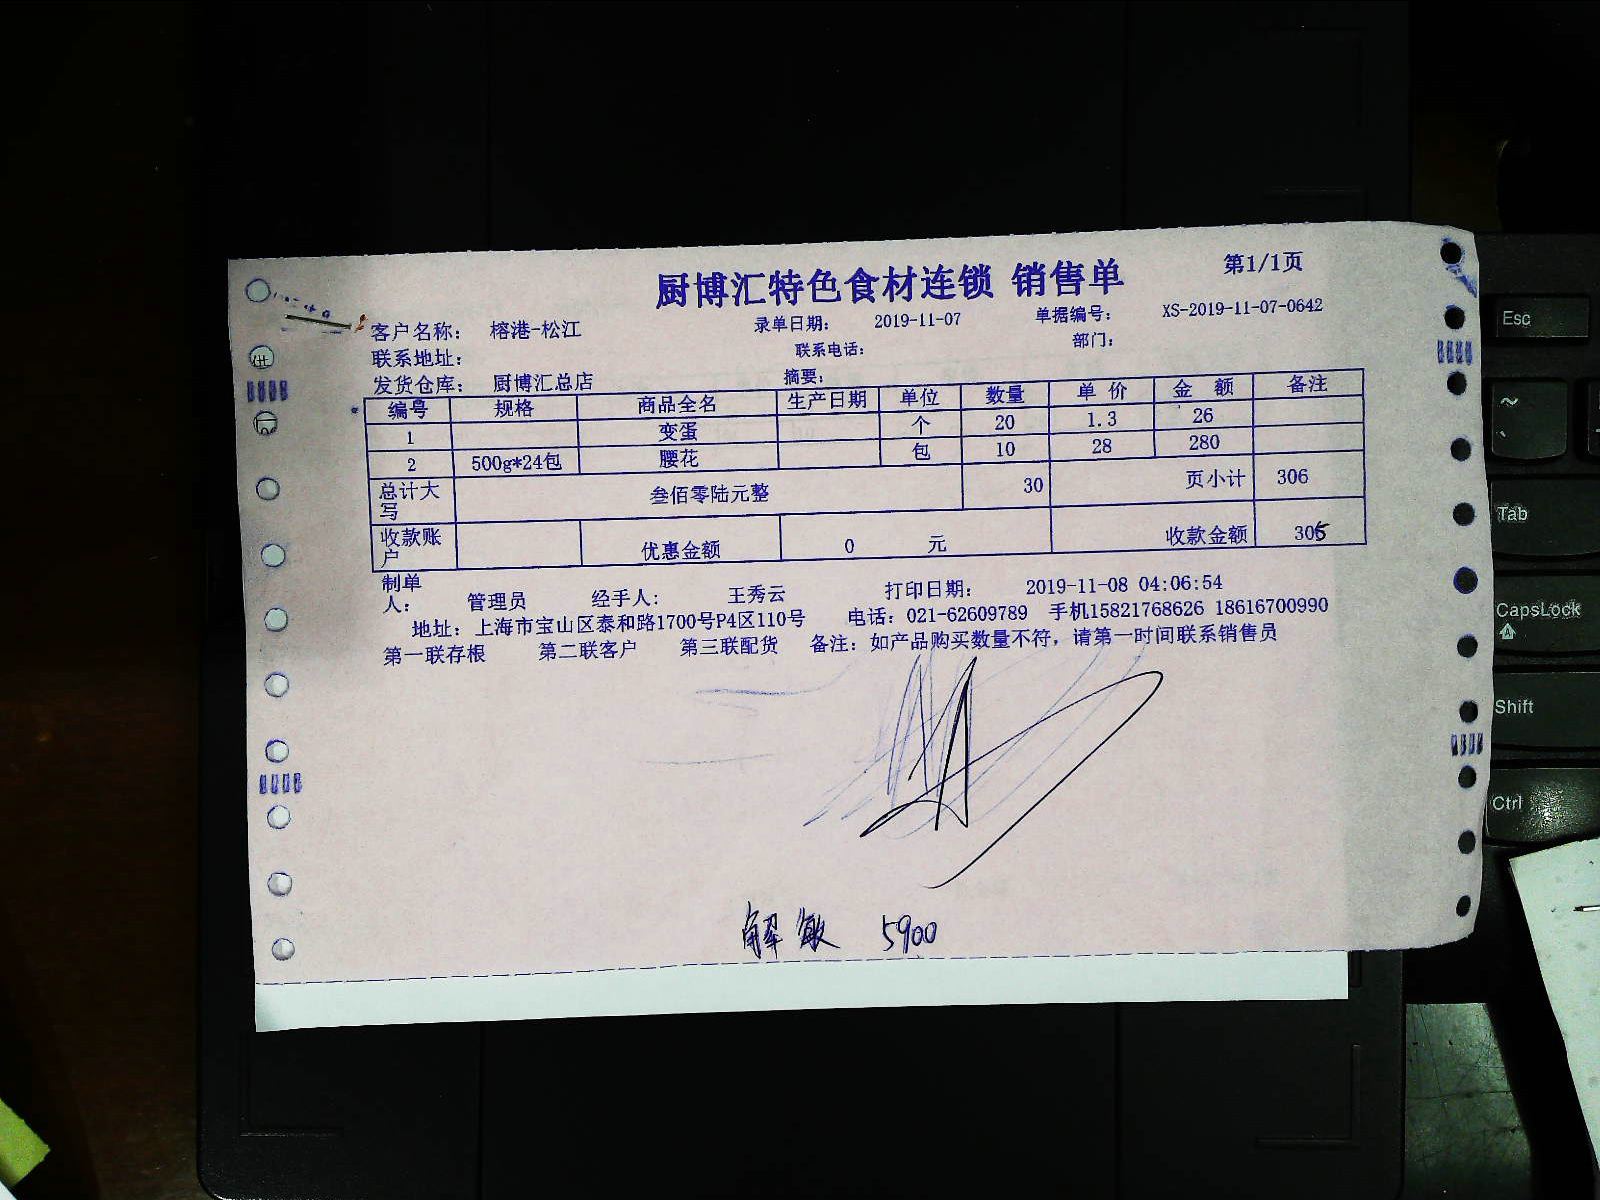 厨博汇特色食材连锁 销售单 第1/1页
客户名称： 榕港-松江 录单日期： 2019-11-07 单据编号： XS-2019-11-07-0642
联系地址： 联系电话： 部门：
发货仓库： 厨博汇总店 摘要：
编号 规格 商品全名 生产日期 单位 数量 单价 金额 备注
1 变蛋 个 20 1.3 26
2 500g*24包 腰花 包 10 28 280
总计大写 叁佰零陆元整 30 页小计 306
收款账户 优惠金额 0 元 收款金额 305
制单人： 管理员 经手人： 王秀云 打印日期： 2019-11-08 04:06:54
地址：上海市宝山区泰和路1700号P4区110号 电话：021-62609789 手机15821768626 18616700990
第一联存根 第二联客户 第三联配货 备注：如产品购买数量不符，请第一时间联系销售员
解敏 5900
Esc
~
Tab
CapsLock
A
Shift
Ctrl